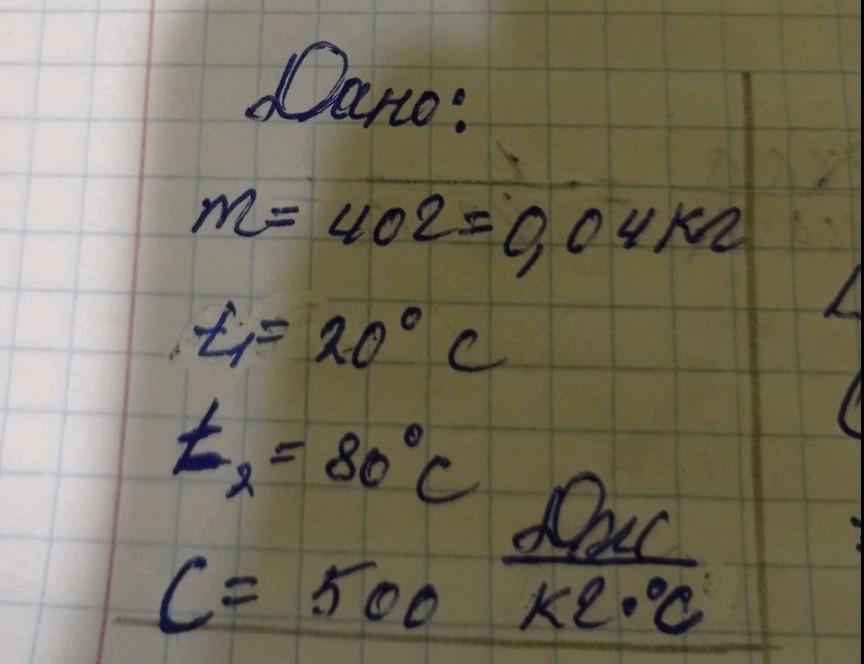 Дано:
m = 40г = 0,04кг
t₁ = 20° C
t₂ = 80°C
C = 500 Дж
кг·°C